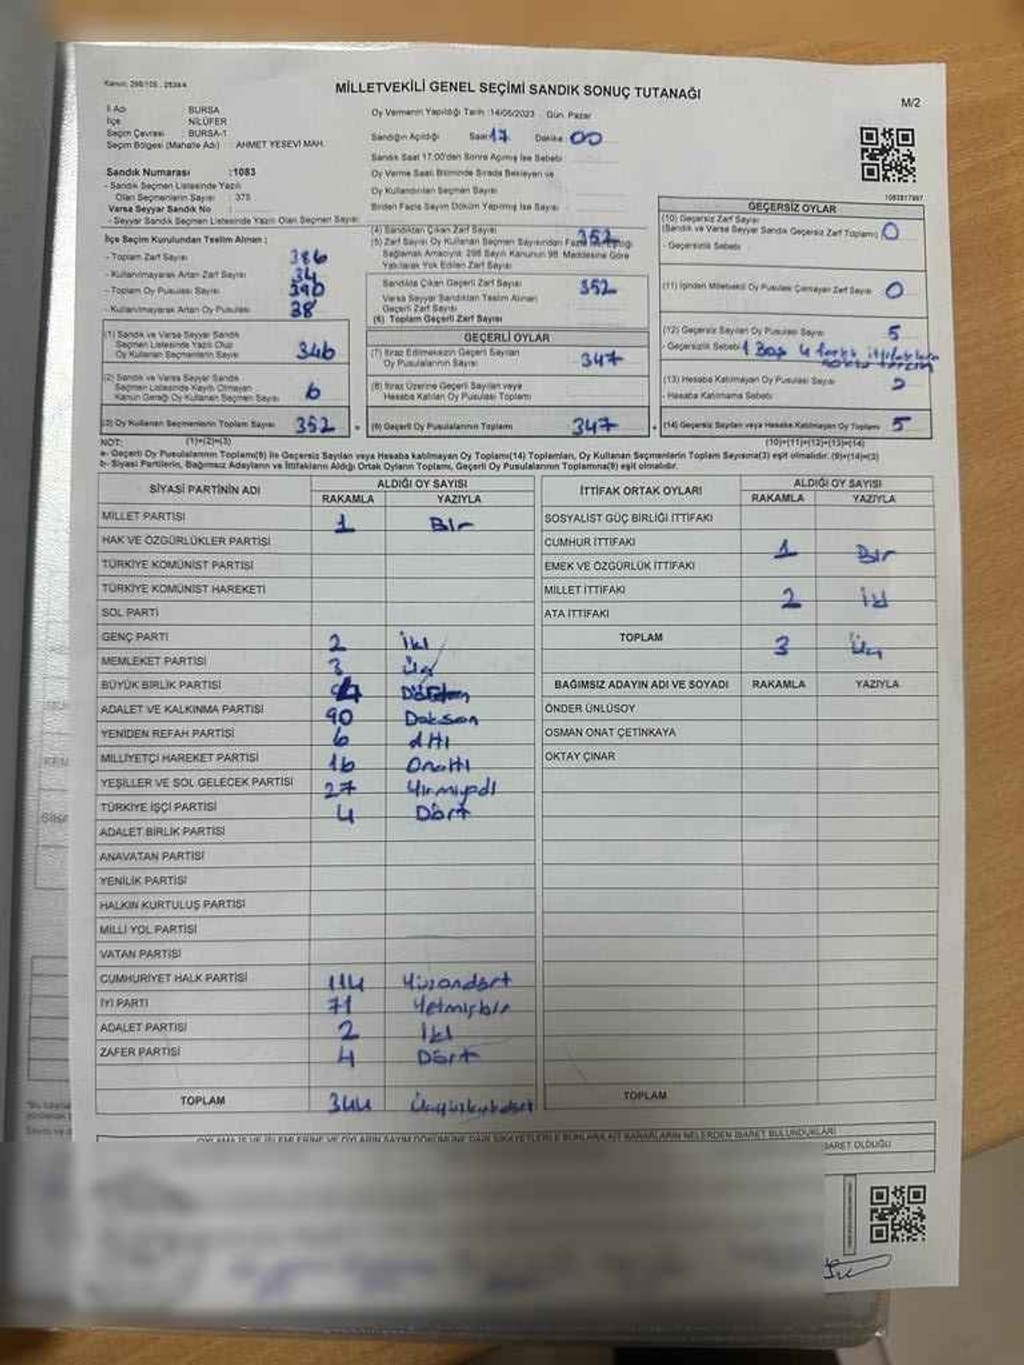 MİLLETVEKİLİ GENEL SEÇİMİ SANDIK SONUÇ TUTANAĞI
M/2
İl Adı : BURSA
İlçe : NİLÜFER
Seçim Çevresi : BURSA-1
Seçim Bölgesi (Mahalle Adı) : AHMET YESEVİ MAH.
Oy Vermenin Yapıldığı Tarih :14/05/2023 Gün Pazar
Sandığın Açıldığı Saat 17 Dakika 00
Sandık Saat 17:00'den Sonra Açılmış İse Sebebi
Oy Verme Saati Bitiminde Sırada Bekleyen ve
Oy Kullandırılan Seçmen Sayısı
Birden Fazla Sayım Döküm Yapılmış İse Sayısı
Sandık Numarası :1083
- Sandık Seçmen Listesinde Yazılı
Olan Seçmenlerin Sayısı : 375
Varsa Seyyar Sandık No
- Seyyar Sandık Seçmen Listesinde Yazılı Olan Seçmen Sayısı:
İlçe Seçim Kurulundan Teslim Alınan :
- Toplam Zarf Sayısı 386
- Kullanılmayarak Artan Zarf Sayısı 34
- Toplam Oy Pusulası Sayısı 390
- Kullanılmayarak Artan Oy Pusulası 38
(1) Sandık ve Varsa Seyyar Sandık
Seçmen Listesinde Yazılı Olup
Oy Kullanan Seçmenlerin Sayısı 346
(2) Sandık ve Varsa Seyyar Sandık
Seçmen Listesinde Kaydı Olmayan
Kanun Gereği Oy Kullanan Seçmen Sayısı 6
(3) Oy Kullanan Seçmenlerin Toplam Sayısı 352
(4) Sandıktan Çıkan Zarf Sayısı 352
(5) Zarf Sayısı Oy Kullanan Seçmen Sayısından Fazla İse, Eşitliği
Sağlamak Amacıyla; 298 Sayılı Kanunun 98. Maddesine Göre
Yakılarak Yok Edilen Zarf Sayısı
Sandıkta Çıkan Geçerli Zarf Sayısı 352
Varsa Seyyar Sandıktan Teslim Alınan
Geçerli Zarf Sayısı
(6) Toplam Geçerli Zarf Sayısı
GEÇERLİ OYLAR
(7) İtiraz Edilmeksizin Geçerli Sayılan
Oy Pusulalarının Sayısı 347
(8) İtiraz Üzerine Geçerli Sayılan veya
Hesaba Katılan Oy Pusulası Toplamı
(9) Geçerli Oy Pusulalarının Toplamı 347
1083817997
GEÇERSİZ OYLAR
(10) Geçersiz Zarf Sayısı
(Sandık ve Varsa Seyyar Sandık Geçersiz Zarf Toplamı) 0
- Geçersizlik Sebebi
(11) İçinden Milletvekili Oy Pusulası Çıkmayan Zarf Sayısı 0
(12) Geçersiz Sayılan Oy Pusulası Sayısı 5
- Geçersizlik Sebebi 1 Boş 4 farklı
(13) Hesaba Katılmayan Oy Pusulası Sayısı
- Hesaba Katılmama Sebebi
(14) Geçersiz Sayılan veya Hesaba Katılmayan Oy Toplamı 5
NOT: (1)+(2)=(3) (10)+(11)+(12)+(13)=(14)
a- Geçerli Oy Pusulalarının Toplamı(9) ile Geçersiz Sayılan veya Hesaba katılmayan Oy Toplamı(14) Toplamları, Oy Kullanan Seçmenlerin Toplam Sayısına(3) eşit olmalıdır. (9)+(14)=(3)
b- Siyasi Partilerin, Bağımsız Adayların ve İttifakların Aldığı Ortak Oyların Toplamı, Geçerli Oy Pusulalarının Toplamına(9) eşit olmalıdır.
SİYASİ PARTİNİN ADI ALDIĞI OY SAYISI
RAKAMLA YAZIYLA
MİLLET PARTİSİ 1 Bir
HAK VE ÖZGÜRLÜKLER PARTİSİ
TÜRKİYE KOMÜNİST PARTİSİ
TÜRKİYE KOMÜNİST HAREKETİ
SOL PARTİ
GENÇ PARTİ 2 İki
MEMLEKET PARTİSİ 3 Üç
BÜYÜK BİRLİK PARTİSİ 4
ADALET VE KALKINMA PARTİSİ 90 Doksan
YENİDEN REFAH PARTİSİ 6 Altı
MİLLİYETÇİ HAREKET PARTİSİ 16 Onaltı
YEŞİLLER VE SOL GELECEK PARTİSİ 27 Yirmiyedi
TÜRKİYE İŞÇİ PARTİSİ 4 Dört
ADALET BİRLİK PARTİSİ
ANAVATAN PARTİSİ
YENİLİK PARTİSİ
HALKIN KURTULUŞ PARTİSİ
MİLLİ YOL PARTİSİ
VATAN PARTİSİ
CUMHURİYET HALK PARTİSİ 114 Yüzondört
İYİ PARTİ 71 Yetmişbir
ADALET PARTİSİ 2 İki
ZAFER PARTİSİ 4 Dört
TOPLAM 344 Üçyüzkırkdört
İTTİFAK ORTAK OYLARI ALDIĞI OY SAYISI
RAKAMLA YAZIYLA
SOSYALİST GÜÇ BİRLİĞİ İTTİFAKI
CUMHUR İTTİFAKI 1 Bir
EMEK VE ÖZGÜRLÜK İTTİFAKI
MİLLET İTTİFAKI 2 İki
ATA İTTİFAKI
TOPLAM 3 Üç
BAĞIMSIZ ADAYIN ADI VE SOYADI RAKAMLA YAZIYLA
ÖNDER ÜNLÜSOY
OSMAN ONAT ÇETİNKAYA
OKTAY ÇINAR
TOPLAM
OYLAMA İŞ VE İŞLEMLERİNE VE OYLARIN SAYIM DÖKÜMÜNE DAİR ŞİKAYETLERLE BUNLARA AİT KARARLARIN NELERDEN İBARET BULUNDUKLARI